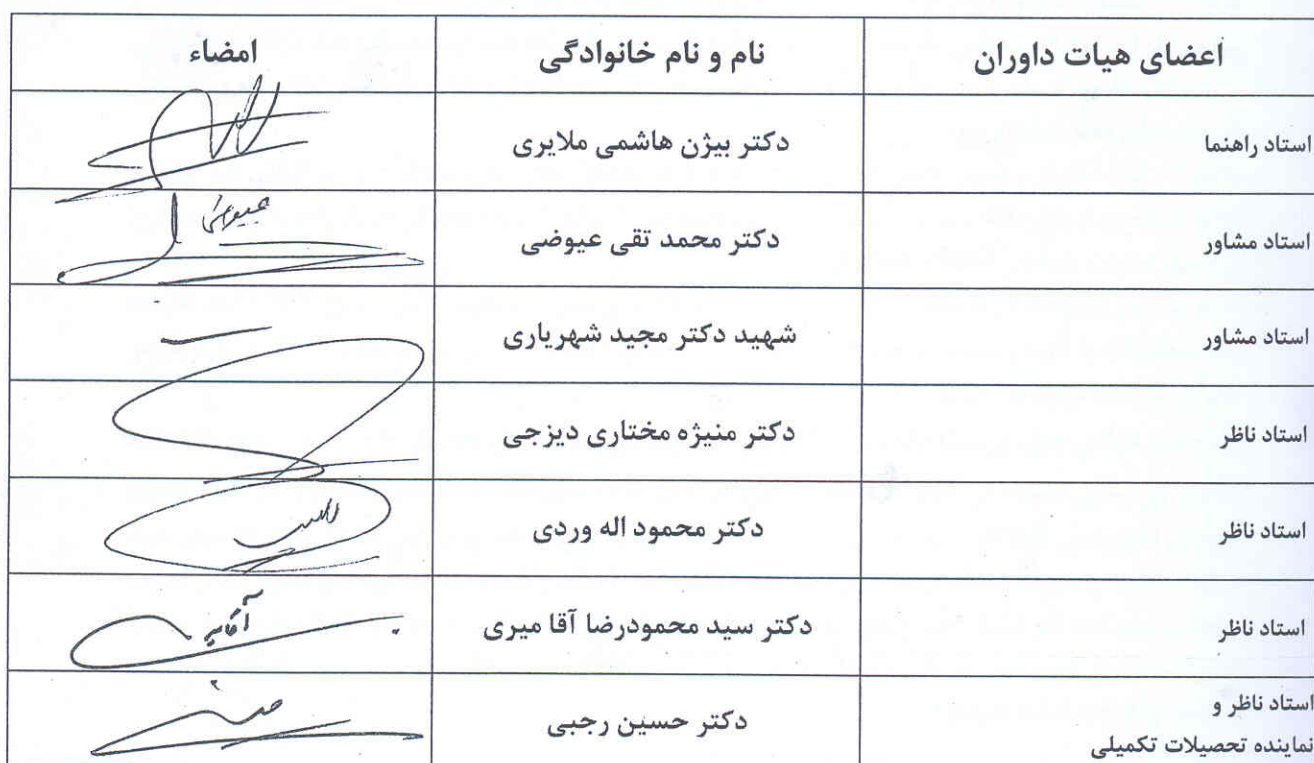 اعضای هیات داوران	نام و نام خانوادگی	امضاء
استاد راهنما	دکتر بیژن هاشمی ملایری
استاد مشاور	دکتر محمد تقی عیوضی	عیوضی
استاد مشاور	شهید دکتر مجید شهریاری
استاد ناظر	دکتر منیژه مختاری دیزجی
استاد ناظر	دکتر محمود اله وردی
استاد ناظر	دکتر سید محمودرضا آقا میری
استاد ناظر و
نماینده تحصیلات تکمیلی	دکتر حسین رجبی